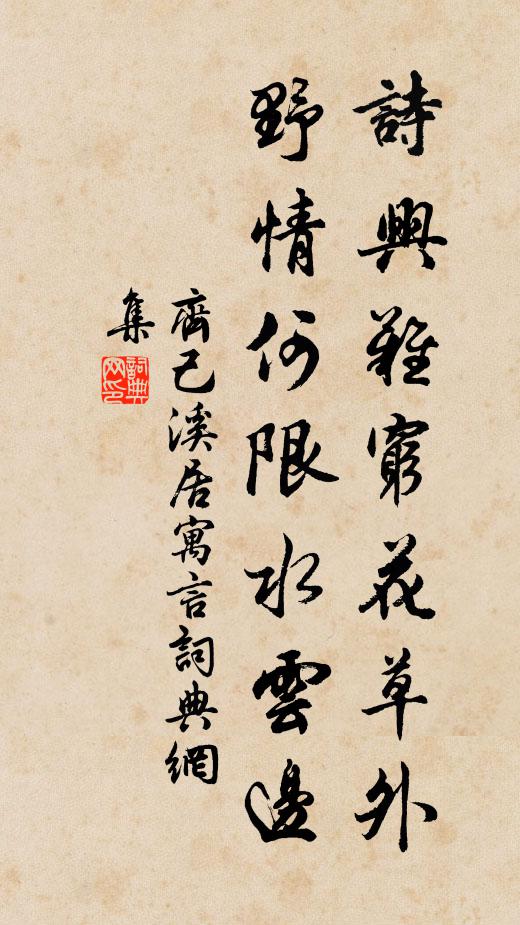 詩興難窮花草外
野情何限水雲邊
齊己溪居寓言詞典網
集
詞典网印